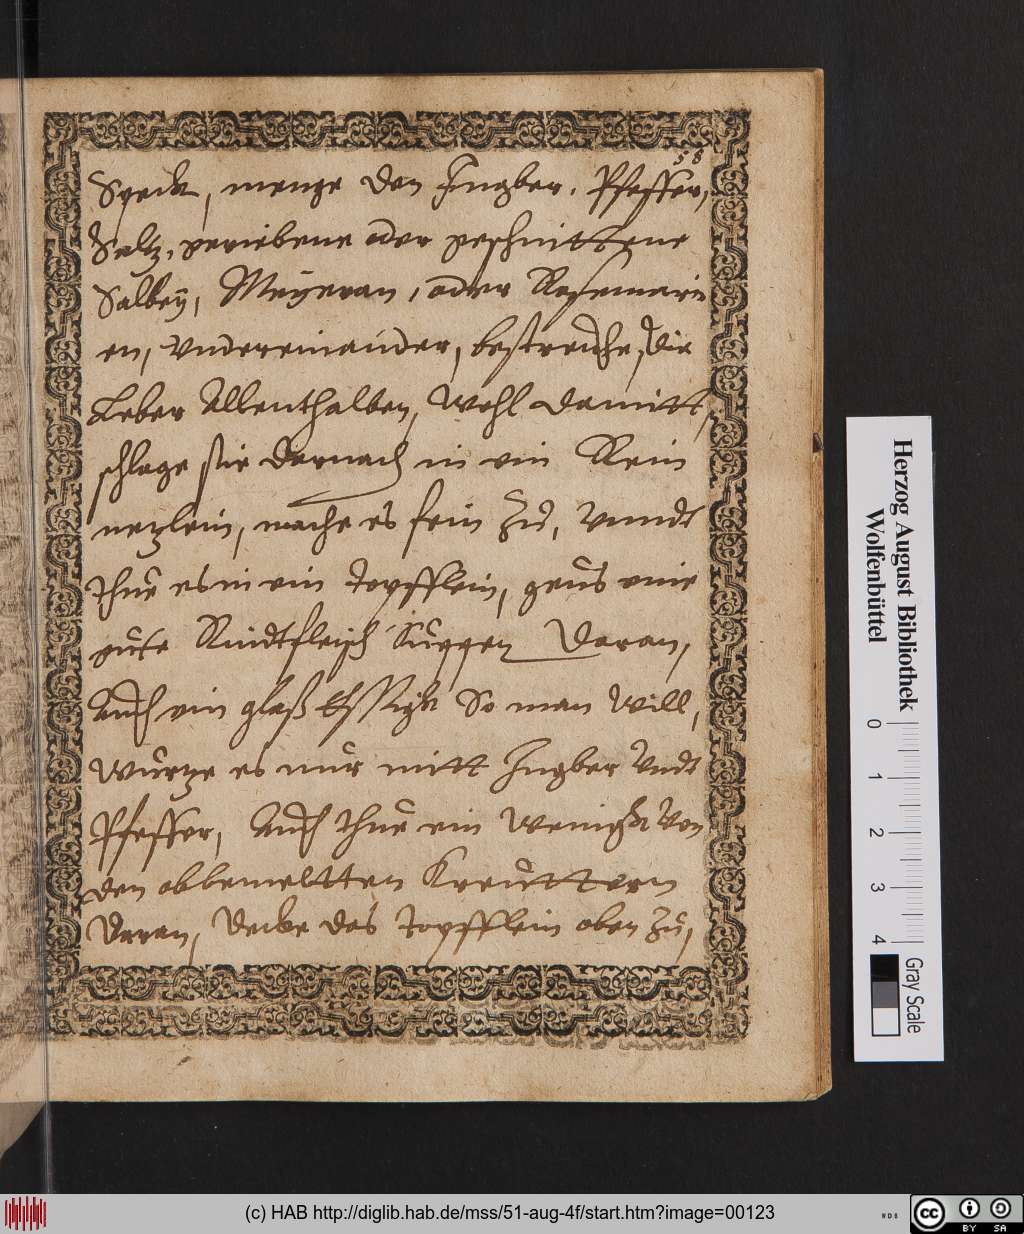 58
Speck, menge den Ingber, Pfeffer,
Saltz, geriebene oder geschnittene
Salbey, Meyeran, oder Rosemarin
en, Undereinander, bestreiche, die
Leber Allenthalben, Wohl damitt,
schlage sie darnach in ein Rein
netzlein, mache es fein zu, Unndt
thue es in ein topfflein, geus eine
gute Rindtfleisch Suppen daran,
Auch ein glaß Essigk So man Will,
Wurtze es nur mitt Ingber Undt
Pfeffer, Auch thue ein Wenigk Von
den obbemeltten Kreuttern
daran, decke das topfflein oben zu,
Herzog August Bibliothek
Wolfenbüttel
0
1
2
3
4
Gray Scale
(c) HAB http://diglib.hab.de/mss/51-aug-4f/start.htm?image=00123
WDB
cc
BY SA